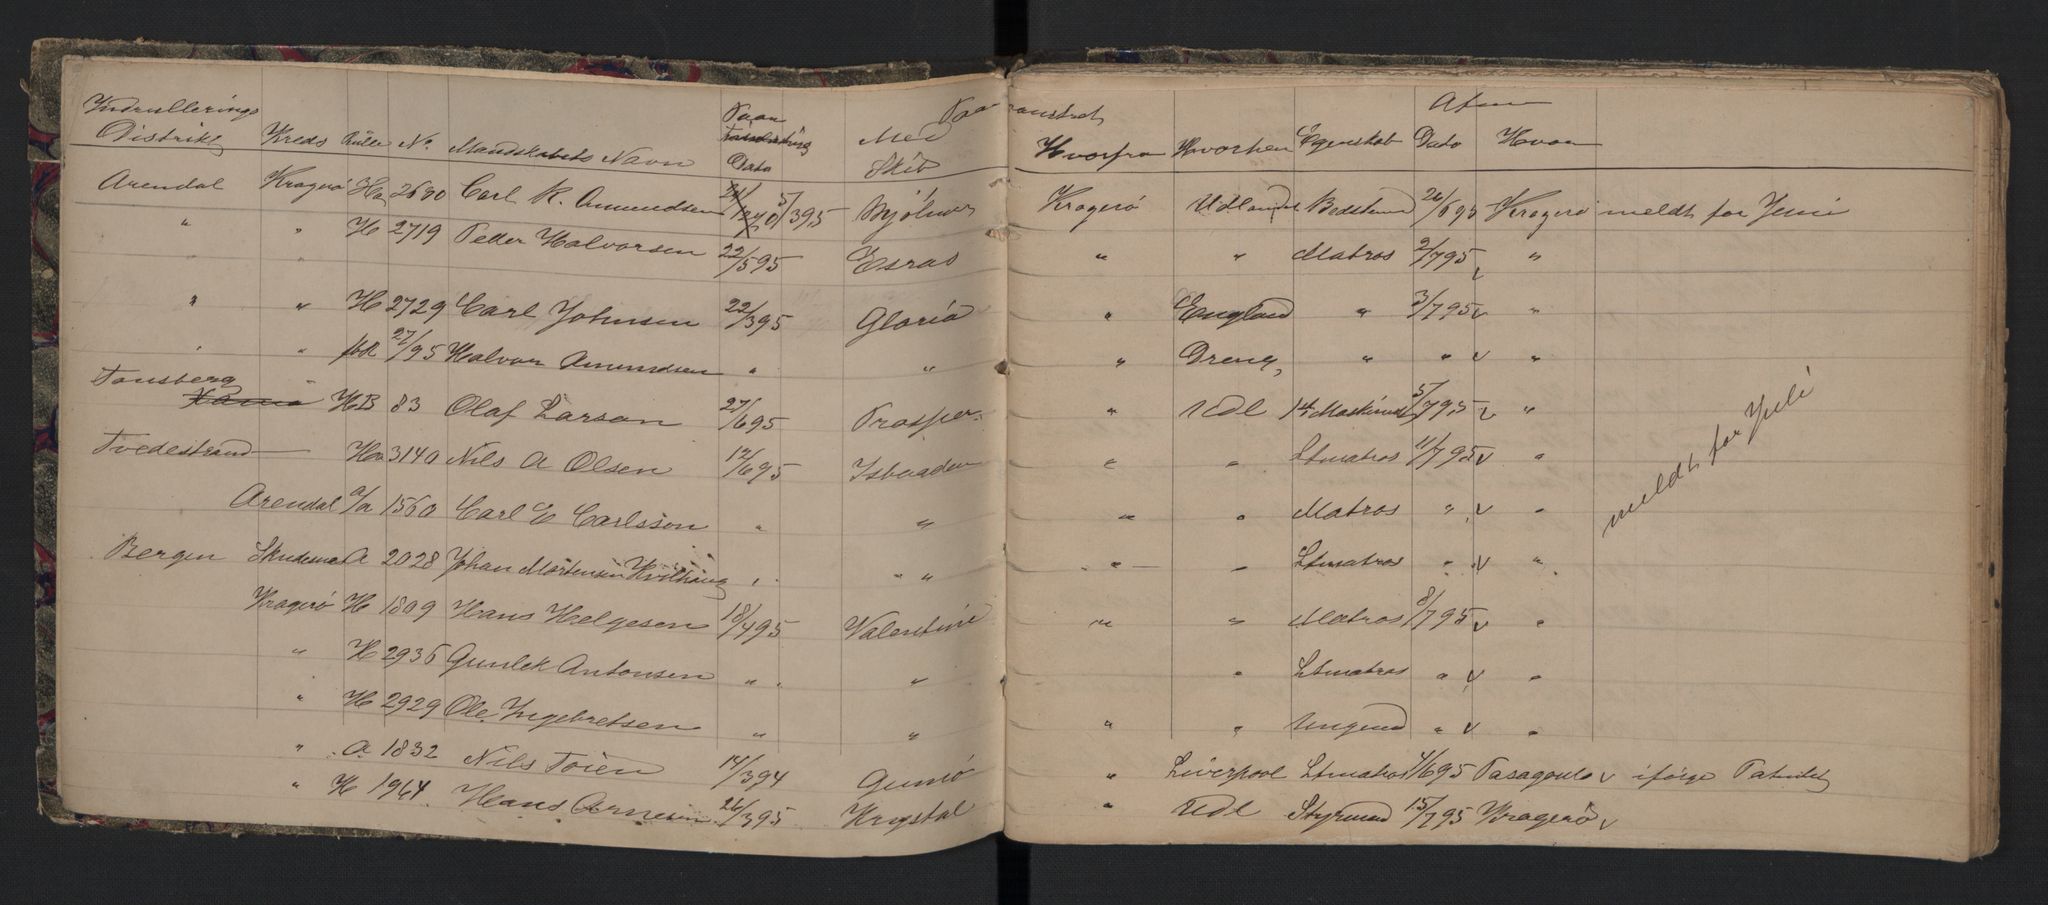 Indrullerings Paa Paamønstret Afm
Distrikt Kreds Rulle No. Mandskabets Navn Dato Med Skib Hvorfra Hvorhen Egenskab Dato Hvor
Arendal Kragerø Ha 2680 Carl R. Amundsen 5/395 Mjølner Kragerø Udlandet Bedstemd 26/695 Kragerø meldt for Juni
" " H 2719 Peder Halvorsen 22/595 Esras " " Matros 2/795 v "
" " H 2729 Carl Johnsen 22/395 Gloria " England " 3/795 v "
" " fsk 27/95 Halvor Amundsen " " " Dreng " " v "
Tønsberg " HB 83 Olaf Larson 27/695 Prosper " Udl 5/795 v "
meldt for Juli
Tvedestrand — Ha 3140 Nils A Olsen 12/695 Isbaaden " " Ltmatros 11/795 v "
Arendal a/a 1560 Carl E Carlsson " " " " Matros " v "
Bergen Skudesnæs A 2028 Johan Mortensen Kvilhaug " " " " Ltmatros " v "
Kragerø H 1809 Hans Helgesen 18/495 Valentine " " Matros 8/795 v "
" H 2936 Gunlek Antonsen " " " Ltmatros " v "
" H 2929 Ole Ingebretsen " " " " Ungmd " v "
" A 1832 Nils Toien 14/394 Gunnø " Liverpool Ltmatros 4/695 Pasagoula v ifølge
" H 1964 Hans Arnesen 26/395 Krystal " Udl Styrmand 15/795 Kragerø v